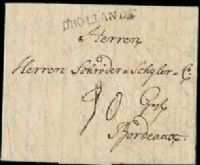 D'HOLLANDE
Herren
Herren Schröder & Schyler & C.
Bordeaux